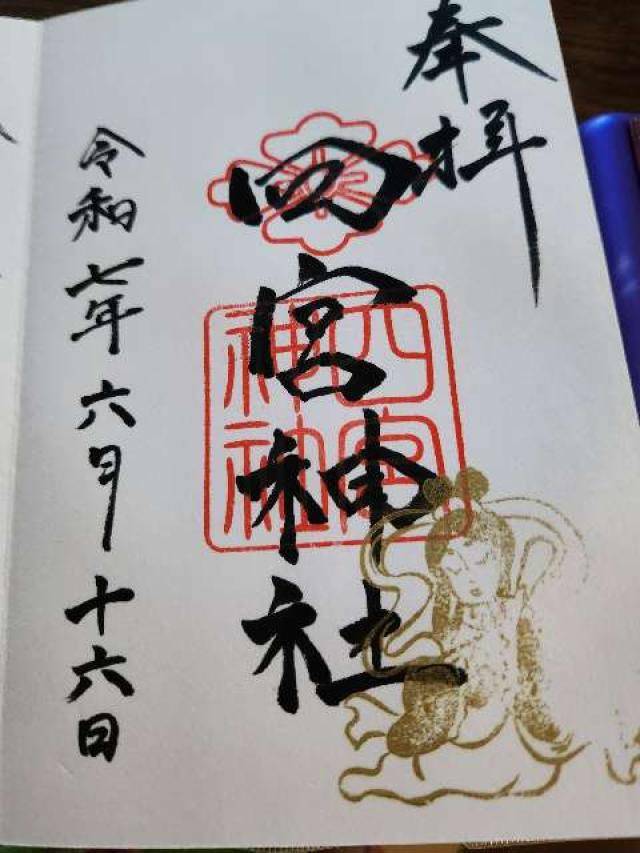 奉拝
四宮神社
四宮神社
令和七年六月十六日